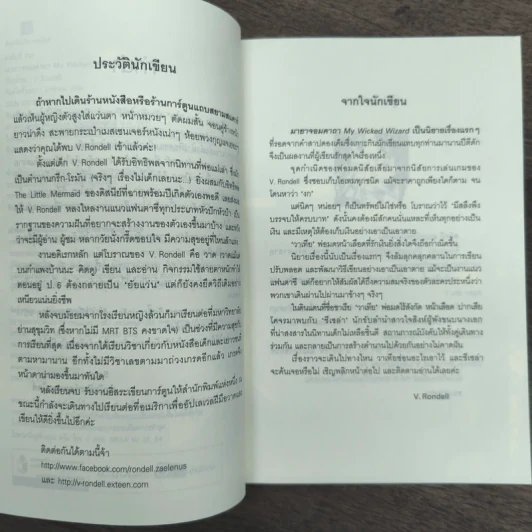 ประวัตินักเขียน
ถ้าหากไปเดินร้านหนังสือหรือร้านการ์ตูนแถบสยามสแควร์
แล้วเห็นผู้หญิงตัวสูงใส่แว่นตา หน้าหมวยๆ ตัดผมสั้น
ยาวน่าดึง สะพายกระเป๋าเมสเซนเจอร์หนังเน่าๆ ห้อยพวงกุญแจ
แสดงว่าคุณได้พบ V. Rondell เข้าแล้วค่ะ!
ตั้งแต่เด็ก V. Rondell ได้รับอิทธิพลจากนิทานที่พ่อแม่เล่า
เป็นตำนานกรีก-โรมัน (จริงๆ เรื่องไม่เด็กเลยนะ...)
The Little Mermaid ของดิสนีย์ที่ฉายพร้อมปีเกิดตัวเองพอดี
ให้ V. Rondell หลงใหลงานแนวแฟนตาซีทุกประเภทหัวปักหัวปำ
รากฐานของความฝันที่อยากจะสร้างงานของตัวเองขึ้นมาบ้าง
ว่าจะมีผู้อ่าน ผู้ชม หลากวัยนั่งกรี๊ดชอบใจ มีความสุขอยู่ที่ไหนสักแห่ง
งานอดิเรกหลัก แต่โบราณของ V. Rondell คือ วาด
บนกำแพงบ้านนะ คิดดู) เขียน และอ่าน กิจกรรมใช้สายตาหน้าดำ
ตอนอยู่ ป.๖ ต้องกลายเป็น "อ้ายแว่น" แต่ก็ยังคงยึดวิถีเดิม
เหนียวแน่นยิ่งชีพ
หลังจบมัธยมจากโรงเรียนหญิงล้วนก็มาเรียนต่อที่มหาวิทยาลัย
ย่านสุขุมวิท (ซึ่งหากไม่มี MRT BTS คงขาดใจ) เป็นช่วงที่มีความสุข
การเรียนที่สุด เนื่องจากได้เรียนวิชาเกี่ยวกับหนังสือเด็กและ
ตามหามานาน อีกทั้งไม่มีวิชาเลขตามมาถ่วงเกรดอีกแล้ว
หน้าตาน่ามองขึ้นมาทันใด
หลังเรียนจบ รับงานอิสระเขียนการ์ตูนให้สำนักพิมพ์แห่งหนึ่ง
ขณะนี้กำลังจะเดินทางไปเรียนต่อที่อเมริกาเพื่ออัปเลเวลฝีมือวาด
เขียนให้ดียิ่งขึ้นไปอีกค่ะ
ติดต่อกันได้ตามนี้จ้า
http://www.facebook.com/rondell.zaelenus
และ http://v-rondell.exteen.com
จากใจนักเขียน
มายาจอมคาถา My Wicked Wizard เป็นนิยายเรื่องแรกๆ
ที่รอดจากคำสาปดองเค็มซึ่งทายกินนักเขียนแทบทุกท่านมานานปีดีดัก
จึงเป็นผลงานที่ผู้เขียนรักสุดใจเรื่องหนึ่ง
จุดกำเนิดของพ่อมดนิสัยเสียมาจากนิสัยการเล่นเกมของ
V. Rondell ซึ่งชอบเก็บไอเทมทุกชนิด แม้จะราคาถูกเพียงใดก็ตาม จน
โดนหาว่า "งก"
แต่นึกๆ หน่อยๆ ก็เป็นทรัพย์ไม่ใช่หรือ โบราณว่าไว้ "มีสลึงพึง
บรรจบให้ครบบาท" ดังนั้นคงต้องมีสักคนนั่นแหละที่เห็นทุกอย่างเป็น
เงิน และมีเหตุให้ต้องเก็บเงินอย่างเอาเป็นเอาตาย
"วาเทีย" พ่อมดหน้าเลือดที่รักเงินยิ่งสิ่งใดจึงถือกำเนิดขึ้น
นิยายเรื่องนี้นับเป็นเรื่องแรกๆ จึงล้มลุกคลุกคลานในการเขียน
ปรับพลอต และพัฒนาวิธีเขียนอย่างเอาเป็นเอาตาย แม้จะเป็นงานแนว
แฟนตาซี แต่ก็อยากให้สัมผัสได้ถึงความสมจริงของตัวละครประหนึ่งว่า
พวกเขาเดินผ่านไปผ่านมาข้างๆ จริงๆ
ในดินแดนที่ชื่อซาเรีย "วาเทีย" พ่อมดไร้สังกัด หน้าเลือด ปากเสีย
โคจรมาพบกับ "ชีเซล่า" นักรบล่านำสารใจสิงห์ผู้พังขนบนางเอก
ที่น่าสงสารในนิทานเด็กไม่เหลือชิ้นดี สถานการณ์บังคับให้ทั้งคู่เดินทาง
ร่วมกัน และกลายเป็นการสร้างตำนานไปด้วยกันอย่างไม่คาดฝัน
เรื่องราวจะเดินไปทางไหน วาเทียซ่อนอะไรเอาไว้ และชีเซล่า
จะค้นเจอหรือไม่ เชิญพลิกหน้าต่อไป และติดตามอ่านได้เลยค่ะ
V. Rondell